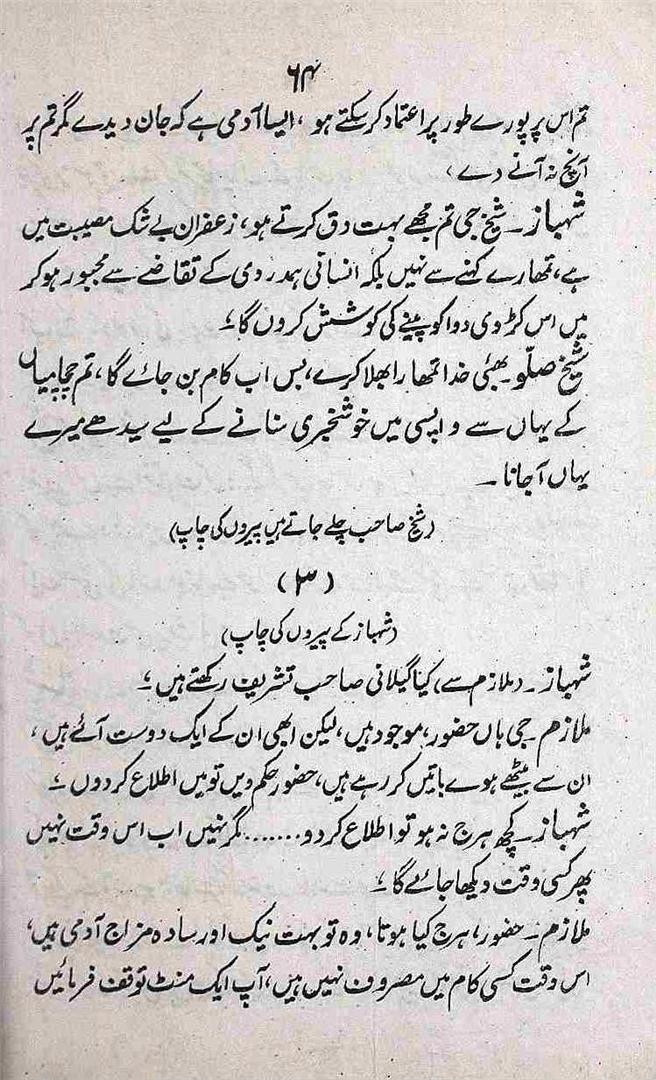 ۶۴
تم اس پر پورے طور پر اعتماد کر سکتے ہو ، ایسا آدمی ہے کہ جان دیدے مگر تم پر
آنچ نہ آنے دے ،
شہباز۔ شیخ جی تم مجھے بہت دق کرتے ہو، زعفران بے شک مصیبت میں
ہے، تمھارے کہنے سے نہیں بلکہ انسانی ہمدردی کے تقاضے سے مجبور ہو کر
میں اس کڑوی دوا کو پینے کی کوشش کروں گا ؛
شیخ صلّو۔ بھئی خدا تمھارا بھلا کرے، بس اب کام بن جائے گا ، تم چچا میاں
کے یہاں سے واپسی میں خوشخبری سنانے کے لیے سیدھے میرے
یہاں آجانا ۔
(شیخ صاحب چلے جاتے ہیں پیروں کی چاپ)
(۳)
(شہباز کے پیروں کی چاپ)
شہباز۔ (ملازم سے) کیا گیلانی صاحب تشریف رکھتے ہیں ؛
ملازم۔ جی ہاں حضور، موجود ہیں، لیکن ابھی ان کے ایک دوست آئے ہیں ،
ان سے بیٹھے ہوے باتیں کر رہے ہیں، حضور حکم دیں تو میں اطلاع کردوں ؛
شہباز۔ کچھ ہرج نہ ہو تو اطلاع کر دو....... مگر نہیں اب اس وقت نہیں
پھر کسی وقت دیکھا جائے گا ؛
ملازم۔ حضور، ہرج کیا ہوتا، وہ تو بہت نیک اور سادہ مزاج آدمی ہیں،
اس وقت کسی کام میں مصروف نہیں ہیں، آپ ایک منٹ توقف فرمائیں